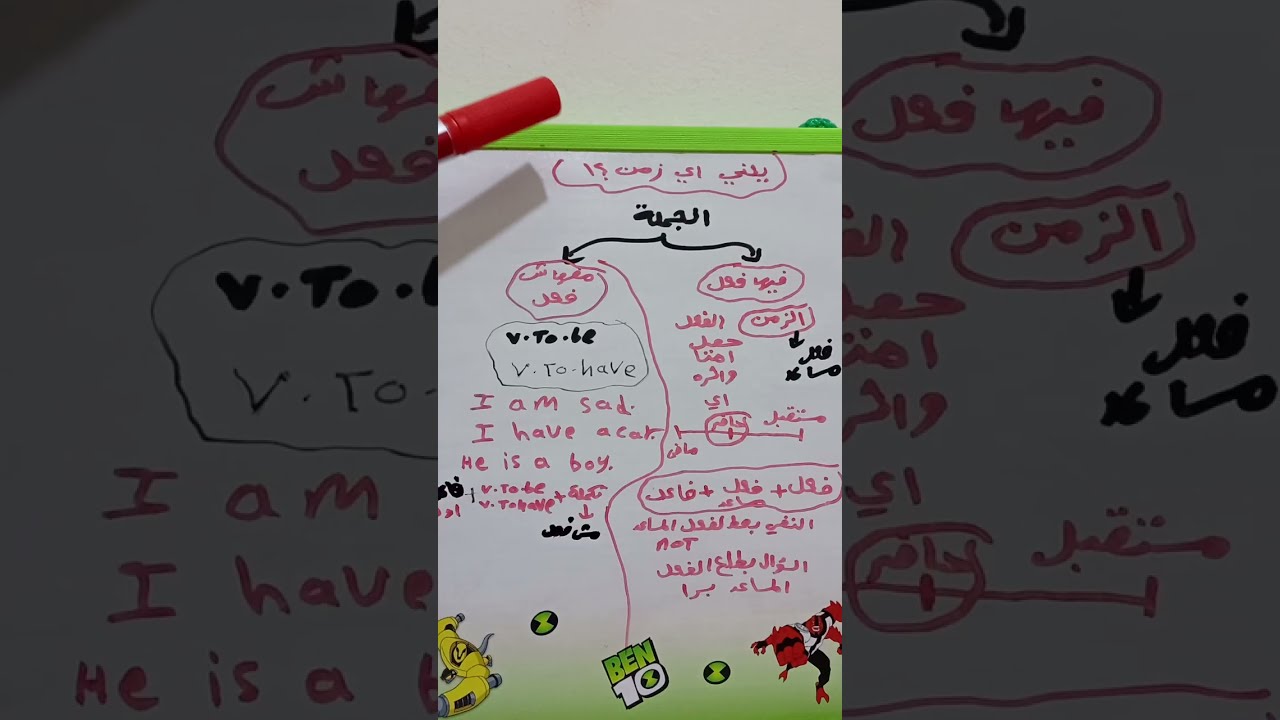 يعني اي زمن ؟!
الجملة
فيها فعل
مفهاش فعل
الزمن
الفعل حصل امتا
والره اي
فعل مساعد
مستقبل
حاضر
ماضي
فاعل + فعل مساعد + فعل
النفي بحط لفعل المساعد
not
السؤال بطلع الفعل
المساعد برا
v.To.be
v.To.have
I am sad.
I have a cat.
He is a boy.
v.To be
v.To have
+ تكملة
مش فعل
BEN
10